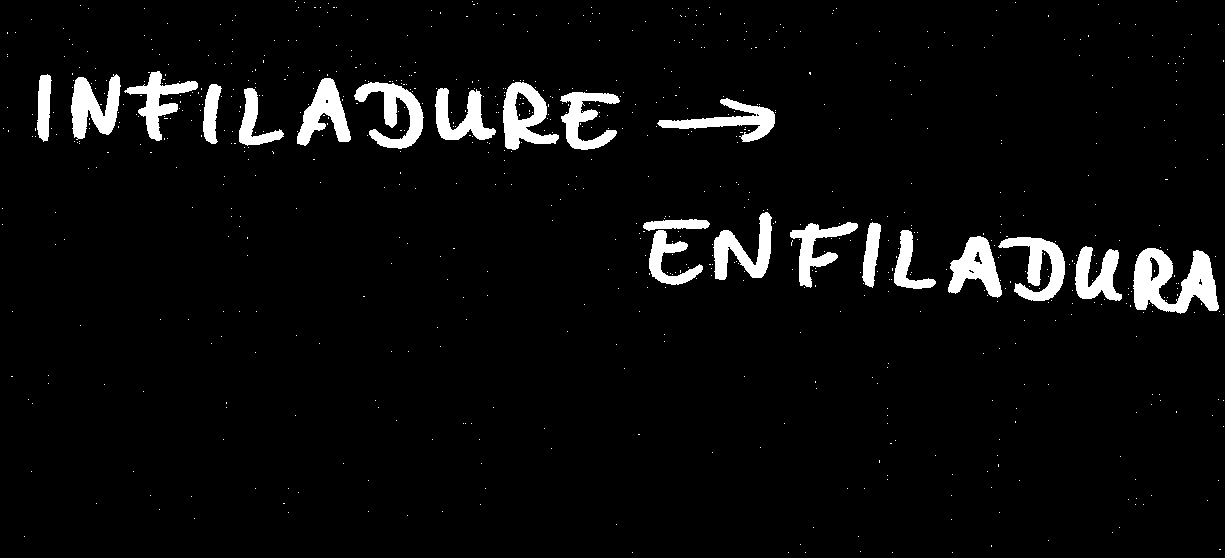 INFILADURE →
ENFILADURA